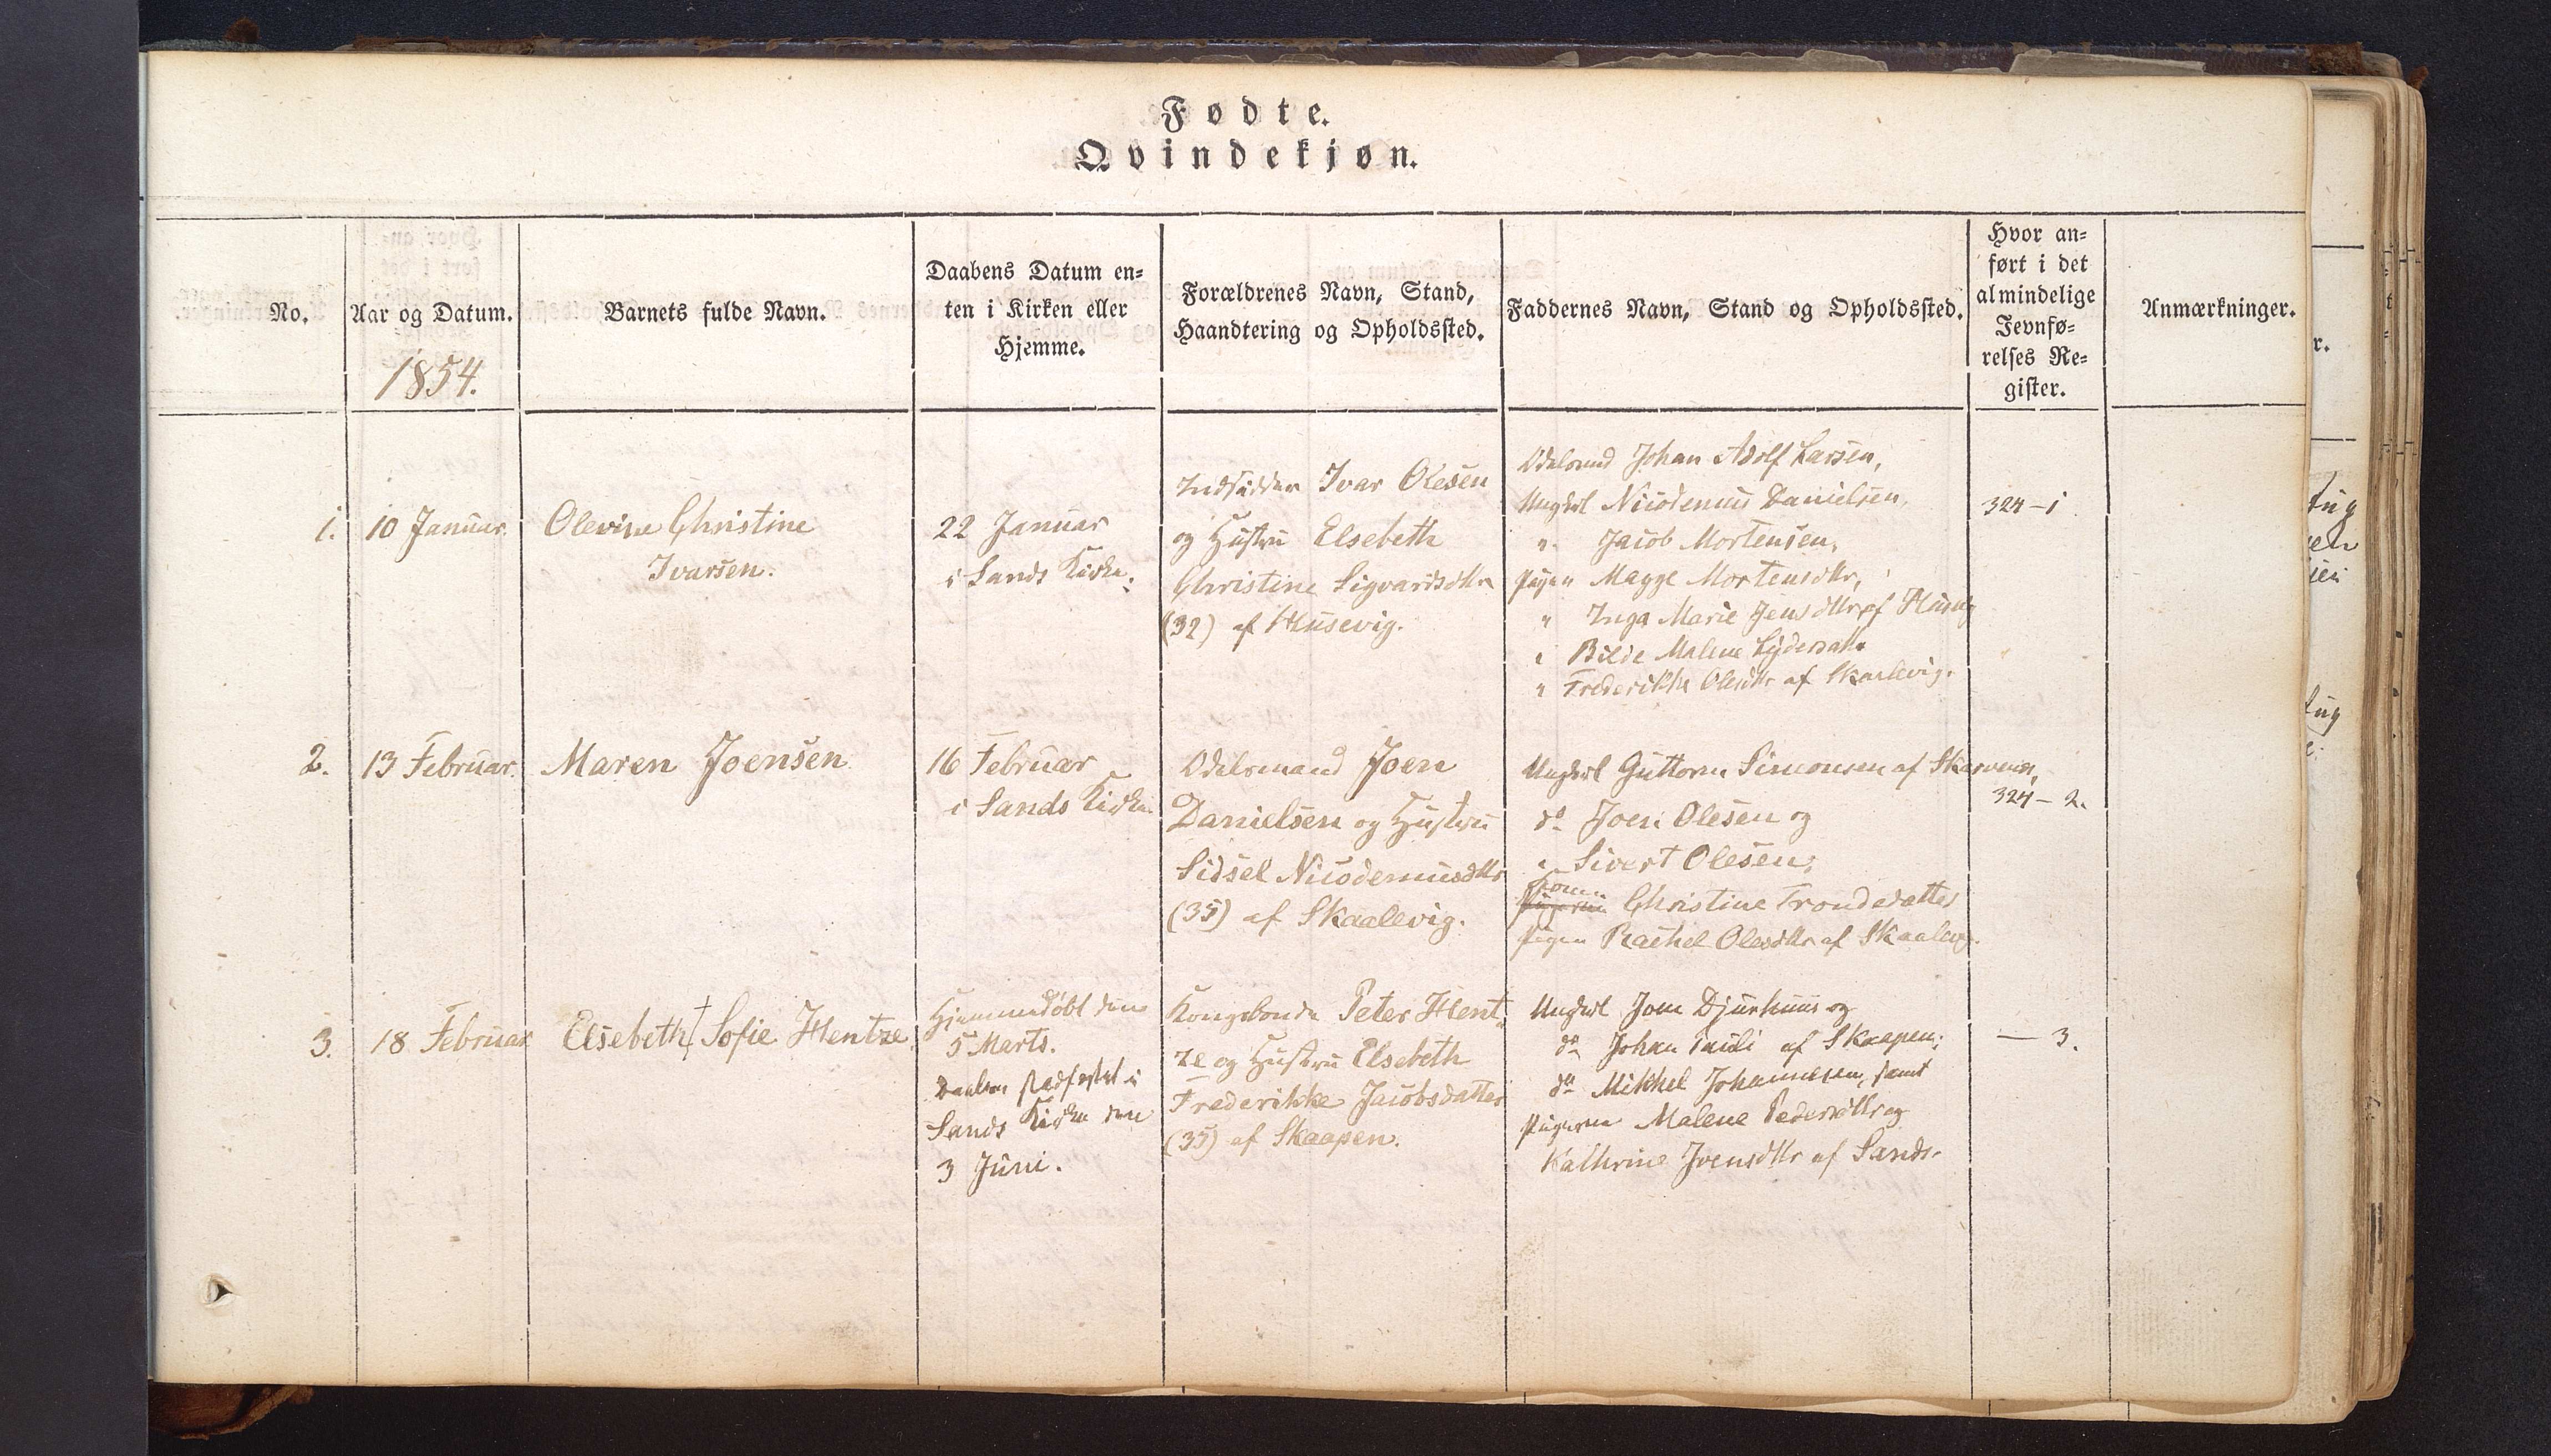 Fødte.
Qvindekjøn.
No.
Aar og Datum.
1854.
Barnets fulde Navn.
Daabens Datum en-
ten i Kirken eller
Hjemme.
Forældrenes Navn, Stand,
Haandtering og Opholdssted.
Faddernes Navn, Stand og Opholdssted.
Hvor an-
ført i det
almindelige
Jevnfø-
relses Re-
gister.
Anmærkninger.
1.
10 Januar.
Olevine Christine
Ivarsen.
22 Januar
i Sands Kirke.
Indsidder Ivar Olesen
og Hustru Elsebeth
Christine Sigvartsdttr
(32) af Husevig.
Odelsmd Johan Adolf Larsen,
Ungkrl Nicodemus Danielsen,
" Jacob Mortensen,
Pigen Magge Mortensdttr,
" Inga Marie Jensdttr af Husvig
" Malene Lydersdttr
" Frederikke Olesdttr af Skaalevig.
324-1
2.
13 Februar.
Maren Joensen
16 Februar
i Sands Kirke
Odelsmand Joen
Danielsen og Hustru
Sidsel Nicodemusdttr
(35) af Skaalevig.
Ungkrl Guttorm Simonsen af Skarvenes,
do Joen Olesen og
" Sivert Olesen,
Christine Trondsdatter
Pigen Rachel Olesdttr af Skaalevig.
324-2.
3.
18 Februar
Elsebeth Sofie Hentze
Hjemmedøbt den
5 Marts.
Daaben stadfæstet i
Sands Kirke den
3 Juni.
Kongsbonde Peter Hent
ze og Hustru Elsebeth
Frederikke Jacobsdatter
(35) af Skaapen.
Ungkrl Joen Djurhuus og
do Johan Pauli af Skaapen;
do Mikkel Johannesen, samt
Pigerne Malene Pedersdttr og
Kathrine Joensdttr af Sands.
— 3.